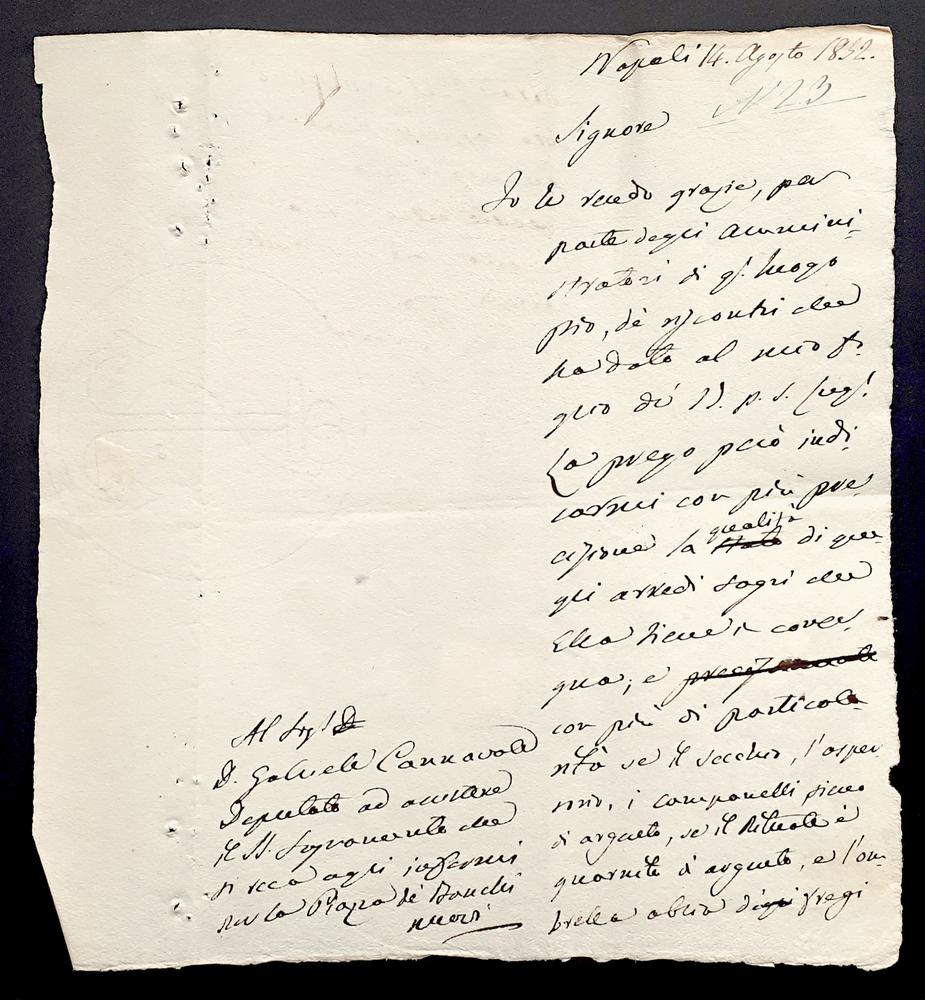 Napoli 14. Agosto 1832.
N 23
Signore
Io le rendo grazie, per
parte degli Ammini-
stratori di q.to luogo
pio, de' riscontri che
ha dato al mio fo-
glio de' p. s. lugl.
La prego però indi-
carmi con più pre
cisione la qualità di que-
gli arredi sagri che
Ella tiene in conse-
gna; e precisamente
con più di particola
rità se il secchio, l'asper
sorio, i campanelli sieno
di argento, se il Rituale è
guarnito d'argento, e l'om-
brella abbia fregi
Al Sig.r D.
D. Gabriele Cannavale
Deputato ad assistere
il SS. Sagramento che
si reca agli infermi
per la Piazza de' Banchi
nuovi